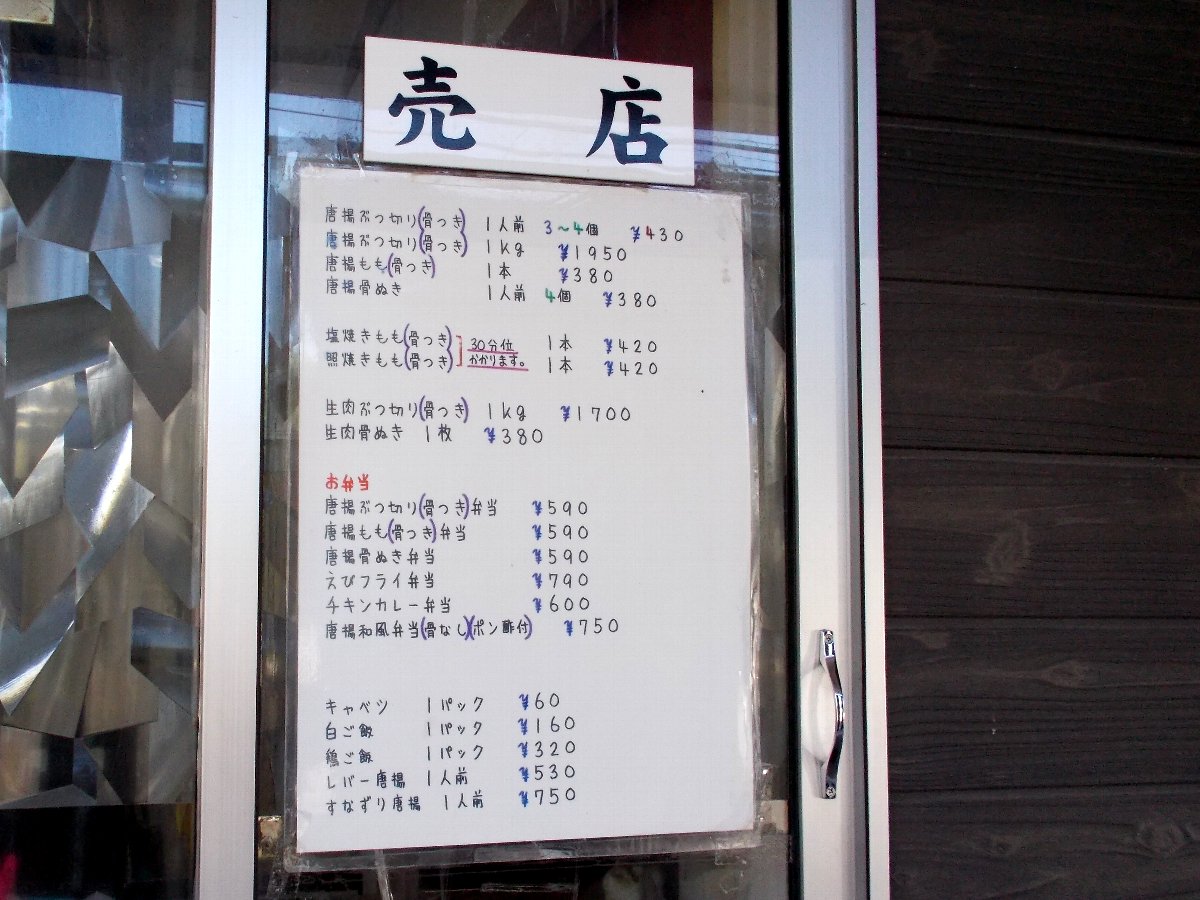 売店
唐揚ぶつ切り(骨つき) 1人前 3〜4個 ¥430
唐揚ぶつ切り(骨つき) 1kg ¥1950
唐揚もも(骨つき) 1本 ¥380
唐揚骨ぬき 1人前 4個 ¥380
塩焼きもも(骨つき) 30分位 1本 ¥420
照焼きもも(骨つき) かかります。 1本 ¥420
生肉ぶつ切り(骨つき) 1kg ¥1700
生肉骨ぬき 1枚 ¥380
お弁当
唐揚ぶつ切り(骨つき)弁当 ¥590
唐揚もも(骨つき)弁当 ¥590
唐揚骨ぬき弁当 ¥590
えびフライ弁当 ¥790
チキンカレー弁当 ¥600
唐揚和風弁当(骨なし)(ポン酢付) ¥750
キャベツ 1パック ¥60
白ご飯 1パック ¥160
鶏ご飯 1パック ¥320
レバー唐揚 1人前 ¥530
すなずり唐揚 1人前 ¥750